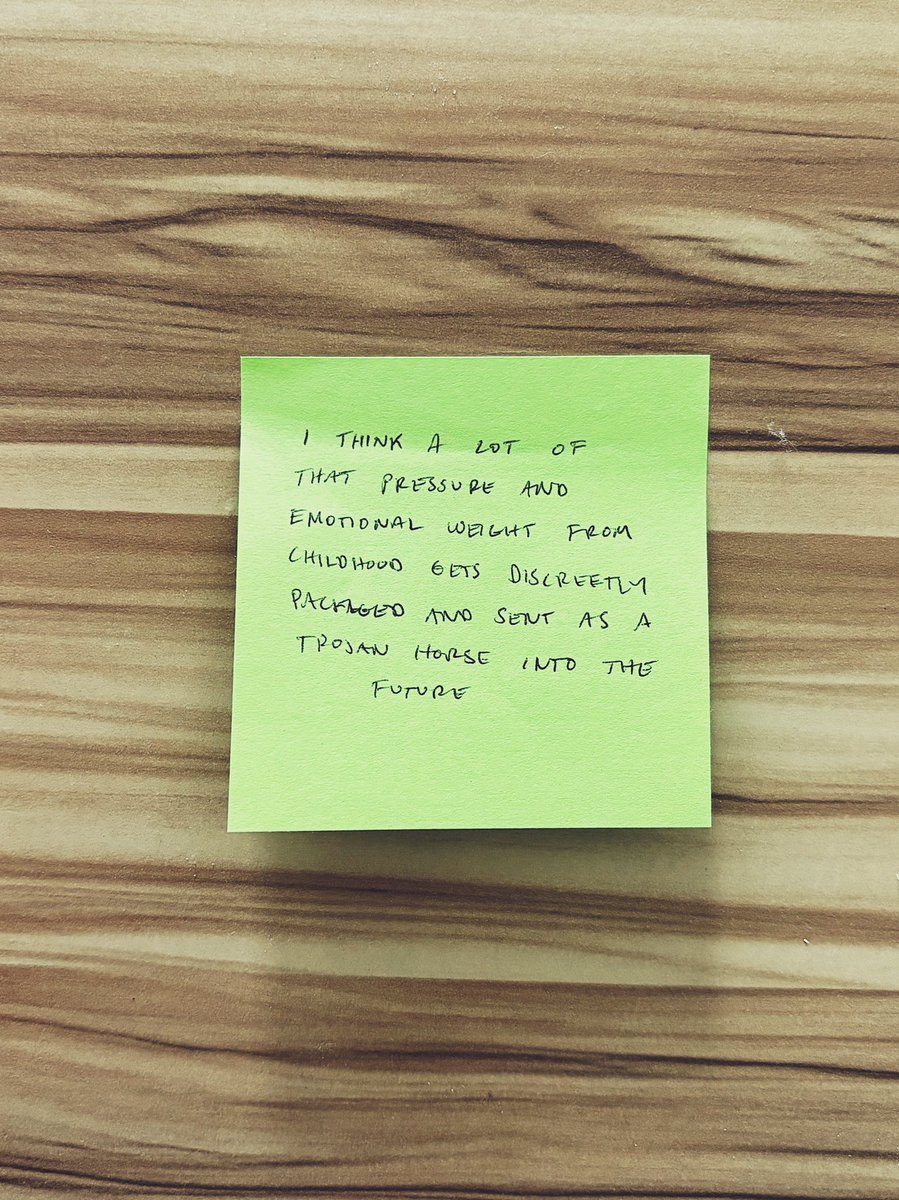 I THINK A LOT OF
THAT PRESSURE AND
EMOTIONAL WEIGHT FROM
CHILDHOOD GETS DISCREETLY
PACKAGED AND SENT AS A
TROJAN HORSE INTO THE
FUTURE